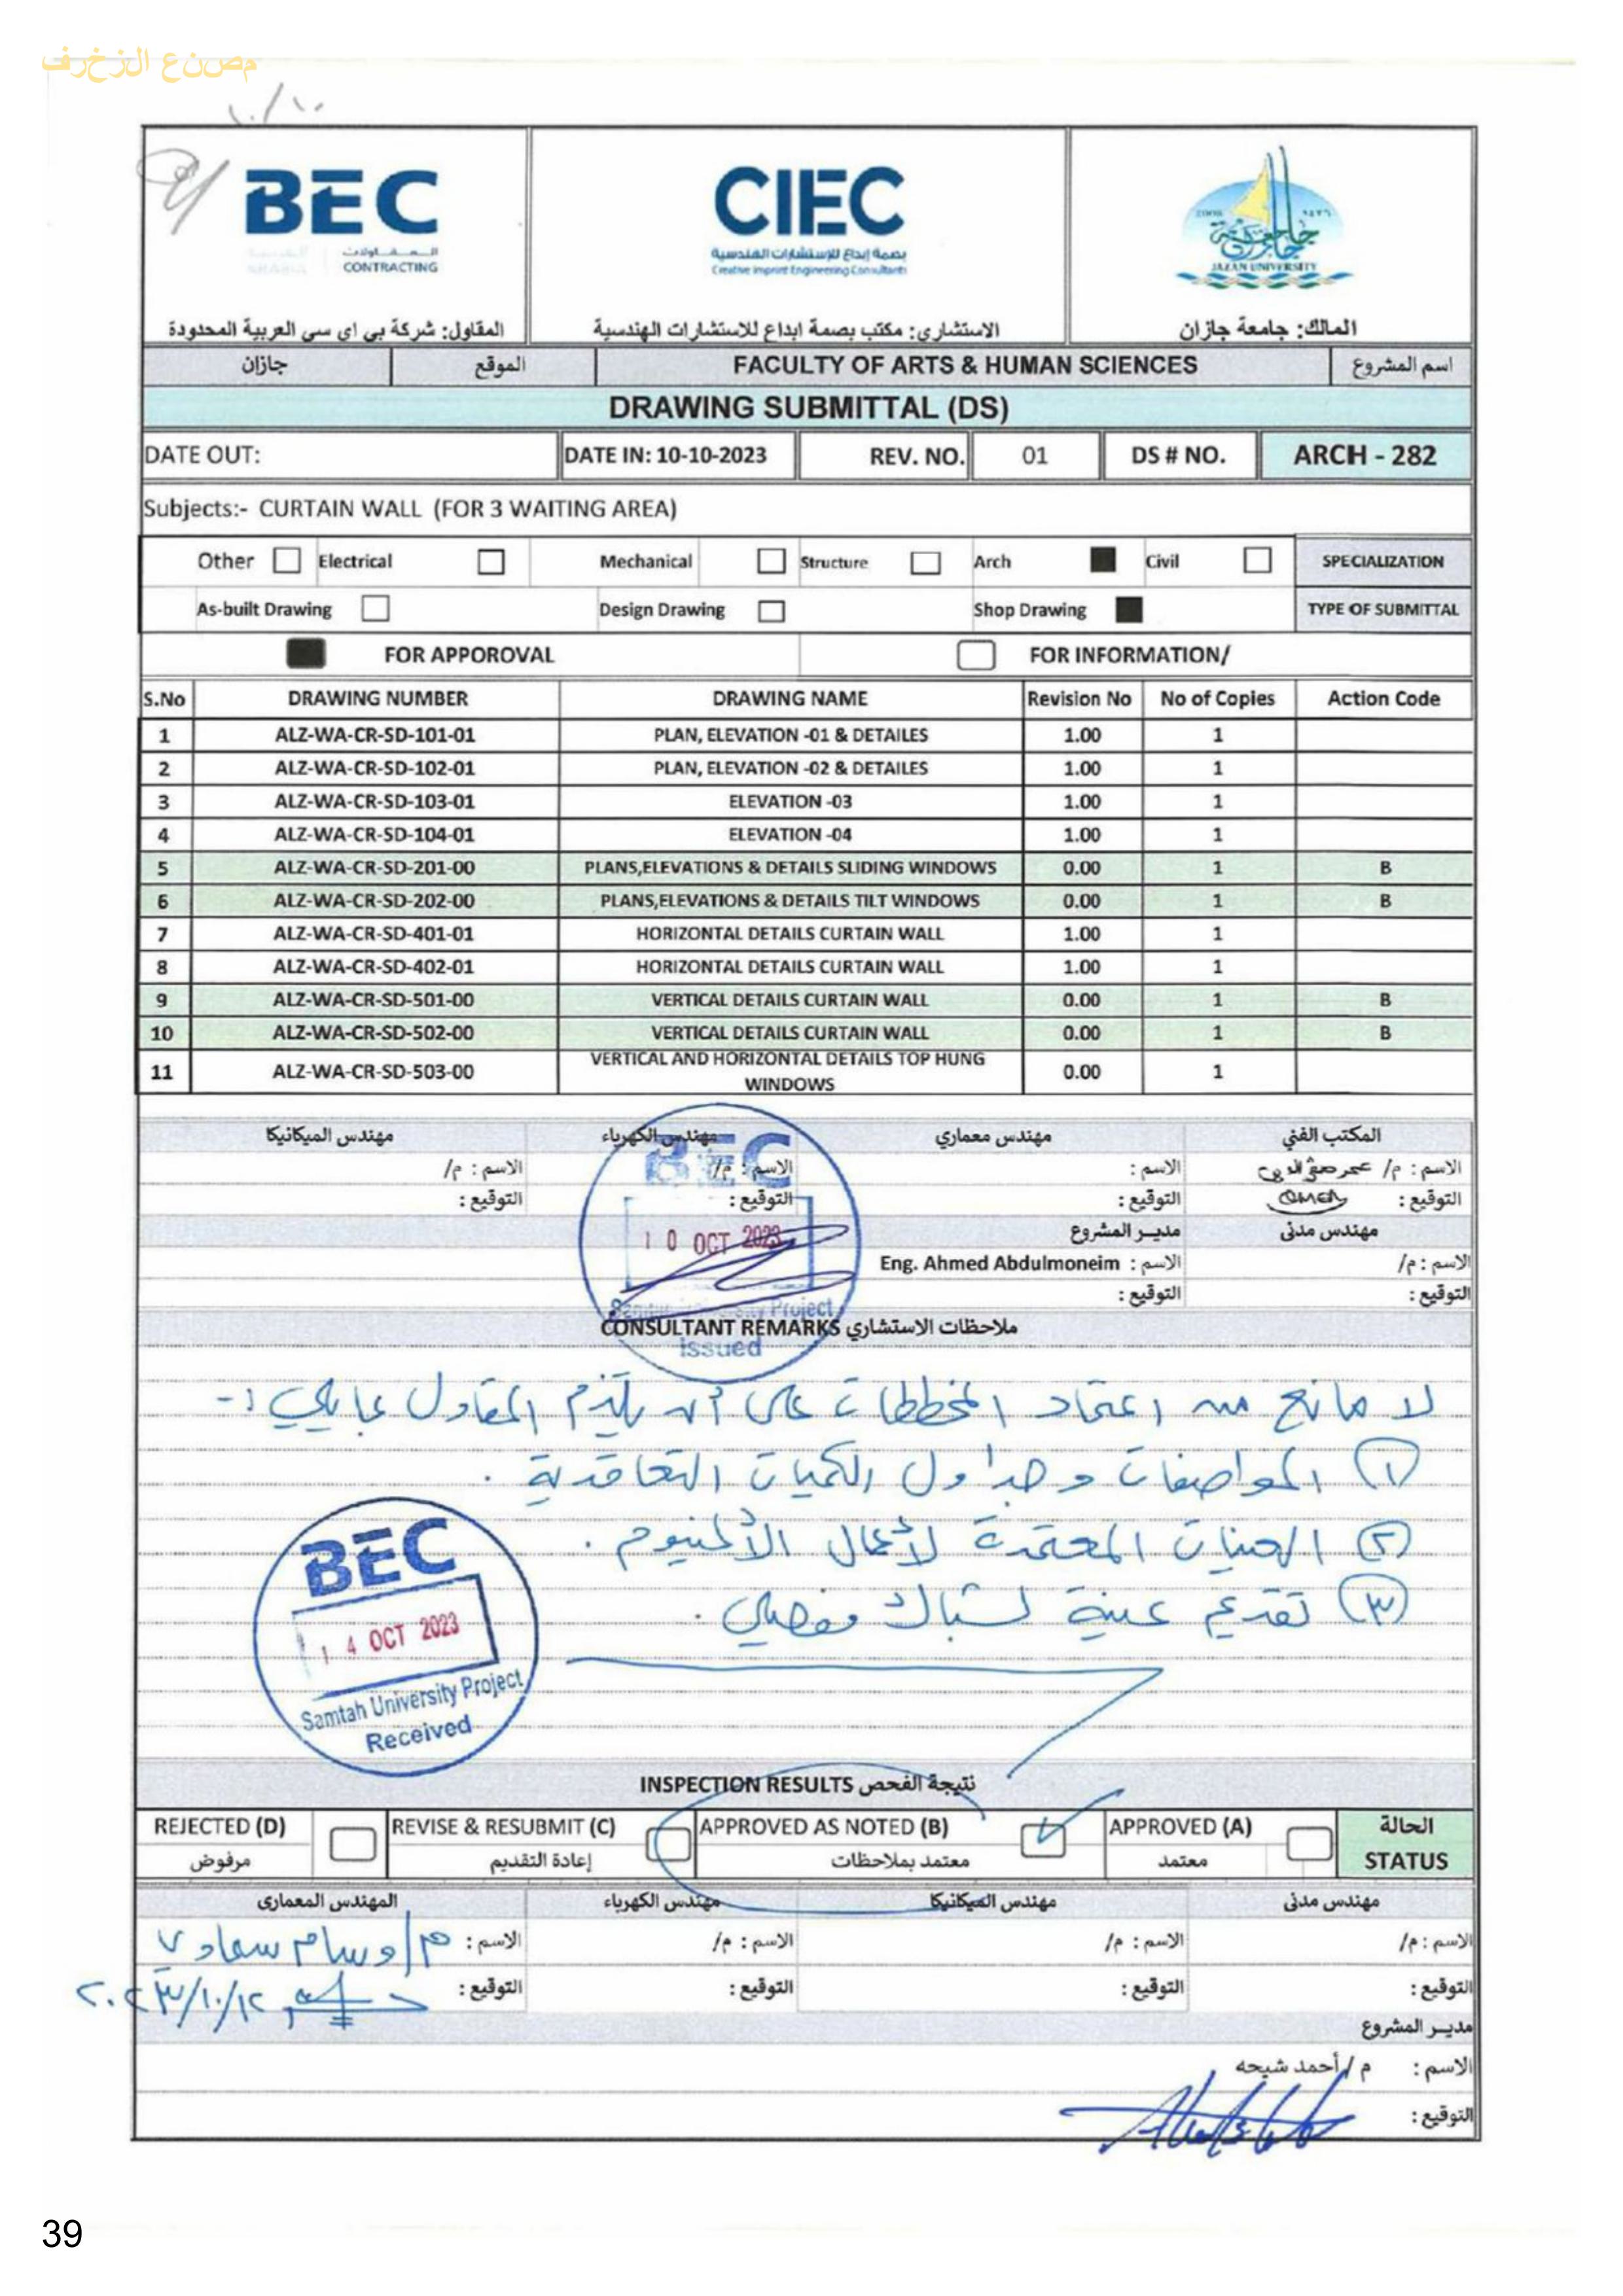 مصنع الزخرف
١٠/١٠
BEC
المقاولات
CONTRACTING
CIEC
بصمة إبداع للإستشارات الهندسية
Creative Imprint Engineering Consultants
JAZAN UNIVERSITY
المقاول: شركة بي اى سى العربية المحدودة
الاستشارى: مكتب بصمة ابداع للاستشارات الهندسية
المالك: جامعة جازان
اسم المشروع FACULTY OF ARTS & HUMAN SCIENCES الموقع جازان
DRAWING SUBMITTAL (DS)
DATE OUT: DATE IN: 10-10-2023 REV. NO. 01 DS # NO. ARCH - 282
Subjects:- CURTAIN WALL (FOR 3 WAITING AREA)
Other Electrical Mechanical Structure Arch Civil SPECIALIZATION
As-built Drawing Design Drawing Shop Drawing TYPE OF SUBMITTAL
FOR APPOROVAL FOR INFORMATION/
S.No DRAWING NUMBER DRAWING NAME Revision No No of Copies Action Code
1 ALZ-WA-CR-SD-101-01 PLAN, ELEVATION -01 & DETAILES 1.00 1
2 ALZ-WA-CR-SD-102-01 PLAN, ELEVATION -02 & DETAILES 1.00 1
3 ALZ-WA-CR-SD-103-01 ELEVATION -03 1.00 1
4 ALZ-WA-CR-SD-104-01 ELEVATION -04 1.00 1
5 ALZ-WA-CR-SD-201-00 PLANS,ELEVATIONS & DETAILS SLIDING WINDOWS 0.00 1 B
6 ALZ-WA-CR-SD-202-00 PLANS,ELEVATIONS & DETAILS TILT WINDOWS 0.00 1 B
7 ALZ-WA-CR-SD-401-01 HORIZONTAL DETAILS CURTAIN WALL 1.00 1
8 ALZ-WA-CR-SD-402-01 HORIZONTAL DETAILS CURTAIN WALL 1.00 1
9 ALZ-WA-CR-SD-501-00 VERTICAL DETAILS CURTAIN WALL 0.00 1 B
10 ALZ-WA-CR-SD-502-00 VERTICAL DETAILS CURTAIN WALL 0.00 1 B
11 ALZ-WA-CR-SD-503-00 VERTICAL AND HORIZONTAL DETAILS TOP HUNG WINDOWS 0.00 1
المكتب الفني مهندس معماري مهندس الكهرباء مهندس الميكانيكا
الاسم : م/ عمر الاسم : الاسم : م/ الاسم : م/
التوقيع : OMER التوقيع : التوقيع : التوقيع :
مهندس مدنى مديـر المشروع
الاسم : م/ الاسم : Eng. Ahmed Abdulmoneim
التوقيع : التوقيع :
BEC
10 OCT 2023
Samtah University Project
Issued
CONSULTANT REMARKS ملاحظات الاستشاري
لا مانع من اعتماد المخططات على أن يلتزم المقاول بما يلي :-
١ المواصفات وجداول الكميات التعاقدية .
٢ العينات المعتمدة لأعمال الألمنيوم .
٣ تقديم عينة لشباك مفصلي .
BEC
14 OCT 2023
Samtah University Project
Received
INSPECTION RESULTS نتيجة الفحص
REJECTED (D) REVISE & RESUBMIT (C) APPROVED AS NOTED (B) APPROVED (A) الحالة
مرفوض إعادة التقديم معتمد بملاحظات معتمد STATUS
مهندس مدنى مهندس الميكانيكا مهندس الكهرباء المهندس المعمارى
الاسم : م/ الاسم : م/ الاسم : م/ الاسم : م/وسام
التوقيع : التوقيع : التوقيع : التوقيع : ٢٠٢٣/١٠/١٢
مديـر المشروع
الاسم : م /أحمد شيحه
التوقيع :
39